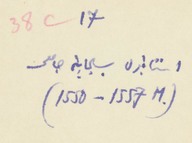 38 c 17
استانبول سليمانيه جامعى
(1550 – 1557 M.)